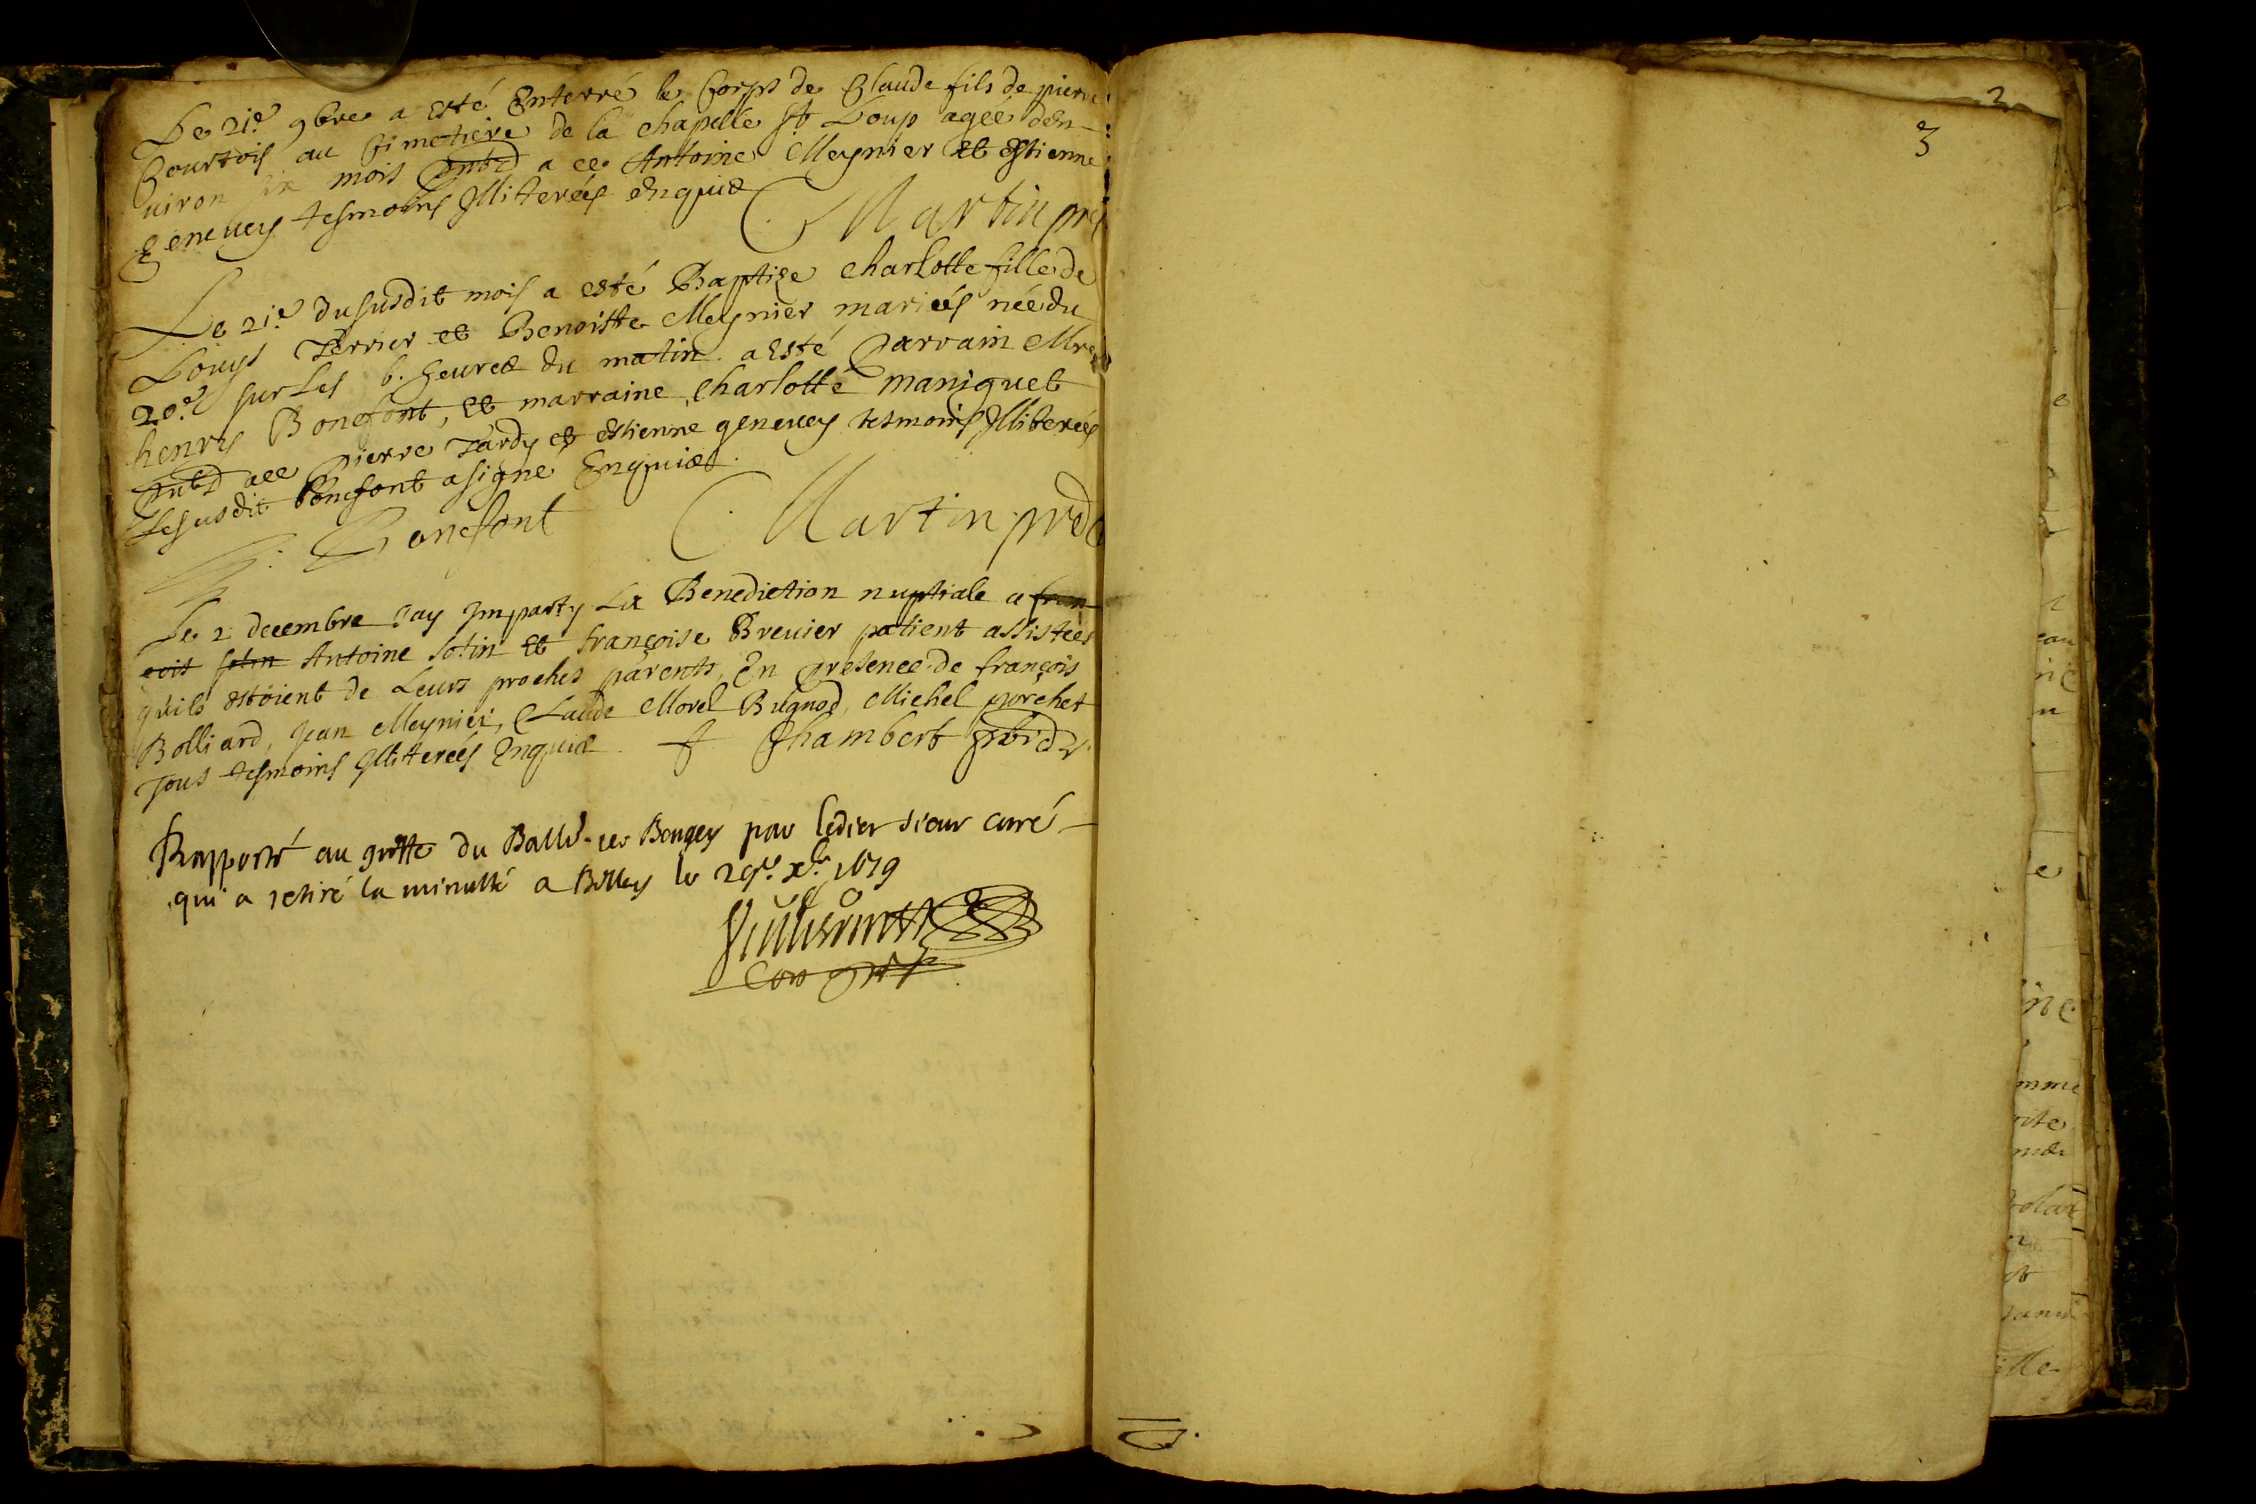 Le 21e 9bre a esté Enterré le Corps de Claude fils de pierre
Courtois au Cimetiere de la chapelle St Loup ageé den-
uiron six mois pntz a ce Antoine Meynier et Estienne
geneuey tesmoins Illitereés Enquis
Martin pre
Le 21e dususdit mois a esté Baptize charlotte fille de
Louys Terrier et Benoitte Meynier mariés née du
20e sur les 6. heures du matin. a esté Parrain Mre
henry Bonefont, et marraine charlotte maniquet
pntz ace Pierre Tardy et estienne geneuey tesmoins Illitereés
Lesusdit Bonefont a signe Enquis.
h. Bonefont Martin pre
Le 2 decembre Jay Imparty La Benediction nuptiale a fran-
cois sotin Antoine sotin et françoise Breuier patient assisteés
quils estoient de Leurs proches parents, En presence de françois
Bolliard, Jean Meynier, Claude Morel Bugnod, Michel porchet
Tous tesmoins Illitereés Enquis. f Chambert
Rapporté au greffe du Balle de Bougey par ledict sieur curé
qui a retiré la minutte a Belley le 29e xbre 1679
3
2